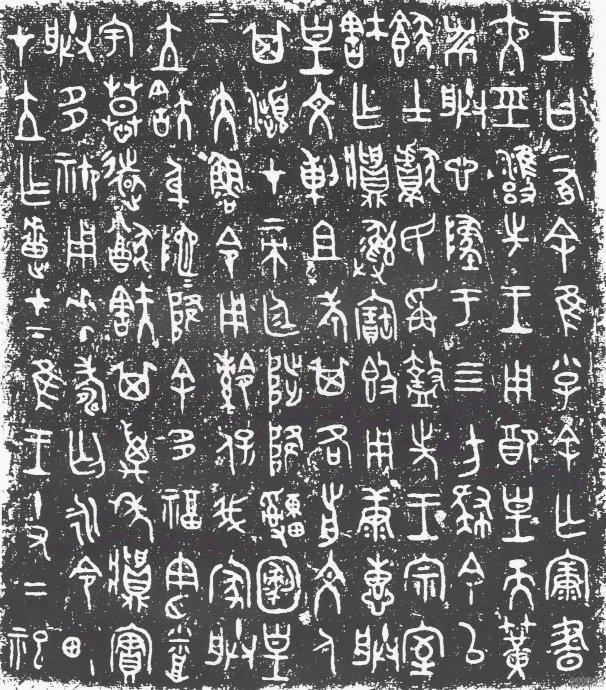 王曰有余隹小子余亡康晝
夜巠雝先王用配皇天黃
黹朕心墜于四方肆余以
士獻民爯盩先王宗室
㝬乍𩱧彝寶簋用康惠朕
皇文剌且考其各前文人
其瀕才帝廷陟降𤕌皇
帝大魯令用保我家朕
立㝬身阤=降余多福憲烝
宇慕遠猷㝬其萬年𩱧實
朕多禦用壽匄永令畯
才立乍疐才下隹王十又二祀